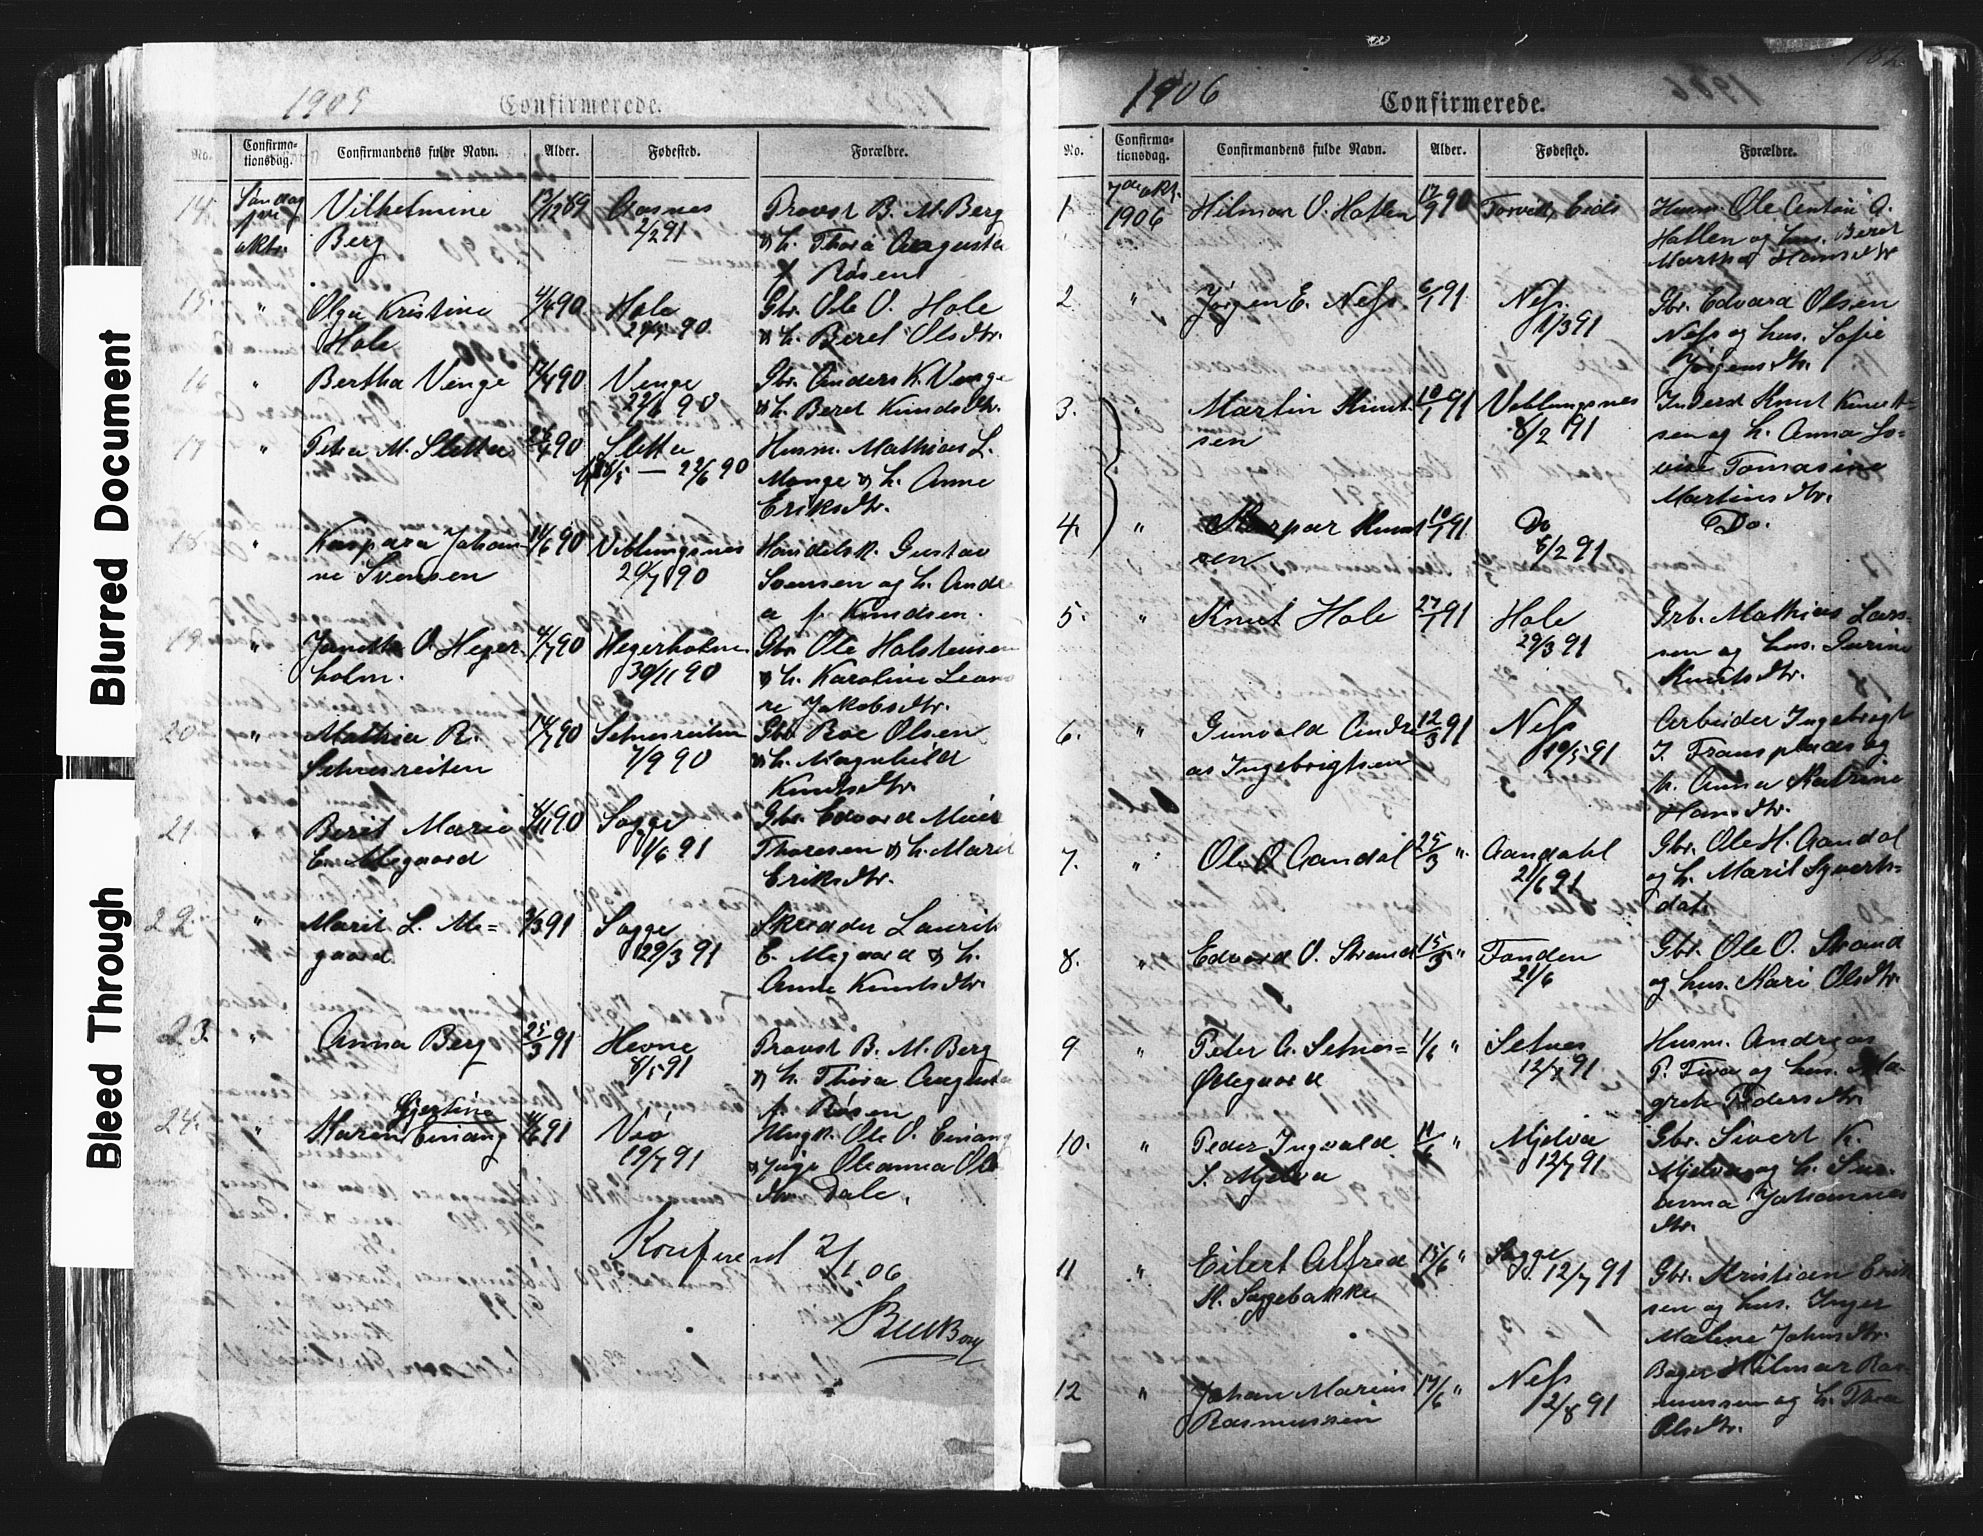 Blurred Document
Bleed Through
1905
Confirmerede.
No.
Confirma-
tionsdag.
Confirmandens fulde Navn.
Alder.
Fødested.
Forældre.
14.
Søndag
okt.
Vilhelmine
Berg
13/12 89
Aasnes
2/2 91
Provst B. M. Berg
& h. Thora Augusta
f. Rosen
15.
"
Olga Kristine
Hole
4/4 90
Hole
90
Gbr. Ole O. Hole
& h. Beret Olsdtr.
16
"
Bertha Venge
90
Venge
22/6 90
Gbr. Anders K. Venge
& h. Beret Knudsdtr.
17
"
Petra M. Sletta
90
Sletta
— 22/6 90
Husm. Mathias L.
Monge & h. Anne
Eriksdtr.
18.
"
Kaspara Johan
ne Svensen
14/6 90
Veblungsnes
20/7 90
Handelsk. Gustav
Svensen og h. Andr
e f. Knudsen.
19.
"
Janetta O. Heger
holm.
4/7 90
Hegerholm
30/11 90
Gbr. Ole Halstensen
& h. Karoline Leono
re Jakobsdtr.
20.
"
Mathia R.
Setnesreiten
14/7 90
Setnesreiten
7/9 90
Gbr. Roe Olsen
& h. Magnhild
Knudsdtr.
21.
"
Berit Marie
E. Megaard
4/11 90
Sogge
1/6 91
Gbr. Edvard Meier
Thoresen & h. Marit
Eriksdtr.
22.
"
Marit L. Me=
gaard
3/3 91
Sogge
29/3 91
Skredder Laurits
E. Megaard & h.
Anne Knutsdtr.
23.
"
Anna Berg
25/3 91
Hevne
8/5 91
Provst B. M. Berg
& h. Thora Augusta
f. Rosen
24.
"
Gjertine
Karen Einang
91
Viø
19/7 91
Ungk. Ole O. Einang
& pige Oleanna Ols
dtr. Dale.
Konfererd 2/1 06
1906
Confirmerede.
182
No.
Confirma-
tionsdag.
Confirmandens fulde Navn.
Alder.
Fødested.
Forældre.
1
7de okt.
1906
Hilmar O. Hatlen
90
Torvik, Eids
Husm. Ole Anton A.
Hatlen og hus. Beret
Martha Hansdtr
2
"
Jørgen E. Ness
6/1 91
Ness.
1/3 91
Gbr. Edvard Olsen
Ness og hus. Sofie
Jørgensdtr.
3.
"
Martin Knut
sen
10/1 91
Veblungsnes
8/2 91
Inderst Knut Knut=
sen og h. Anna Lo=
vise Tomasine
Martinsdtr.
4.
"
Kaspar Knut
sen
10/1 91
Do
8/2 91
Do.
5.
"
Knut Hole
27/1 91
Hole
29/3 91
Grb. Mathias Lars=
sen og hus. Gurine
Knutsdtr.
6.
"
Gunvald Andre
as Ingebrigtsen
12/3 91
Ness
10/5 91
Arbeider Ingebrigt
J. Fransplads og
h. Anna Katrine
Hansdtr.
7.
"
Ole O Aandal
25/3 "
Aandahl
21/6 91
Gbr. Ole H. Aandal
og h. Marit Syverts=
datr
8.
"
Edvard O. Strand
15/3 "
Tonden
21/6
Gbr. Ole O. Strand
og hus. Kari Olsdtr.
9
"
Peter A. Setnes=
Ødegaard
1/6 "
Setnes
12/7 91
Husm. Andreas
P. Fiva og hus. Ma-
grete Pedersdtr.
10.
"
Peder Ingvald
S. Mjelva
11/6 "
Mjelva
12/7 91
Gbr. Sivert K.
Mjelva og h. Sus
anna Johannes
dtr.
11
"
Eilert Alfred
K. Soggebakke
15/6 "
Sogge
12/7 91
Gbr. Kristian Erik
sen og hus. Inger
Malene Johnsdtr.
12
"
Johan Marius
Rasmussen
17/6 "
Ness
2/8 91
Bager Hilmar Ras
mussen og h. Thea
Olsdtr.